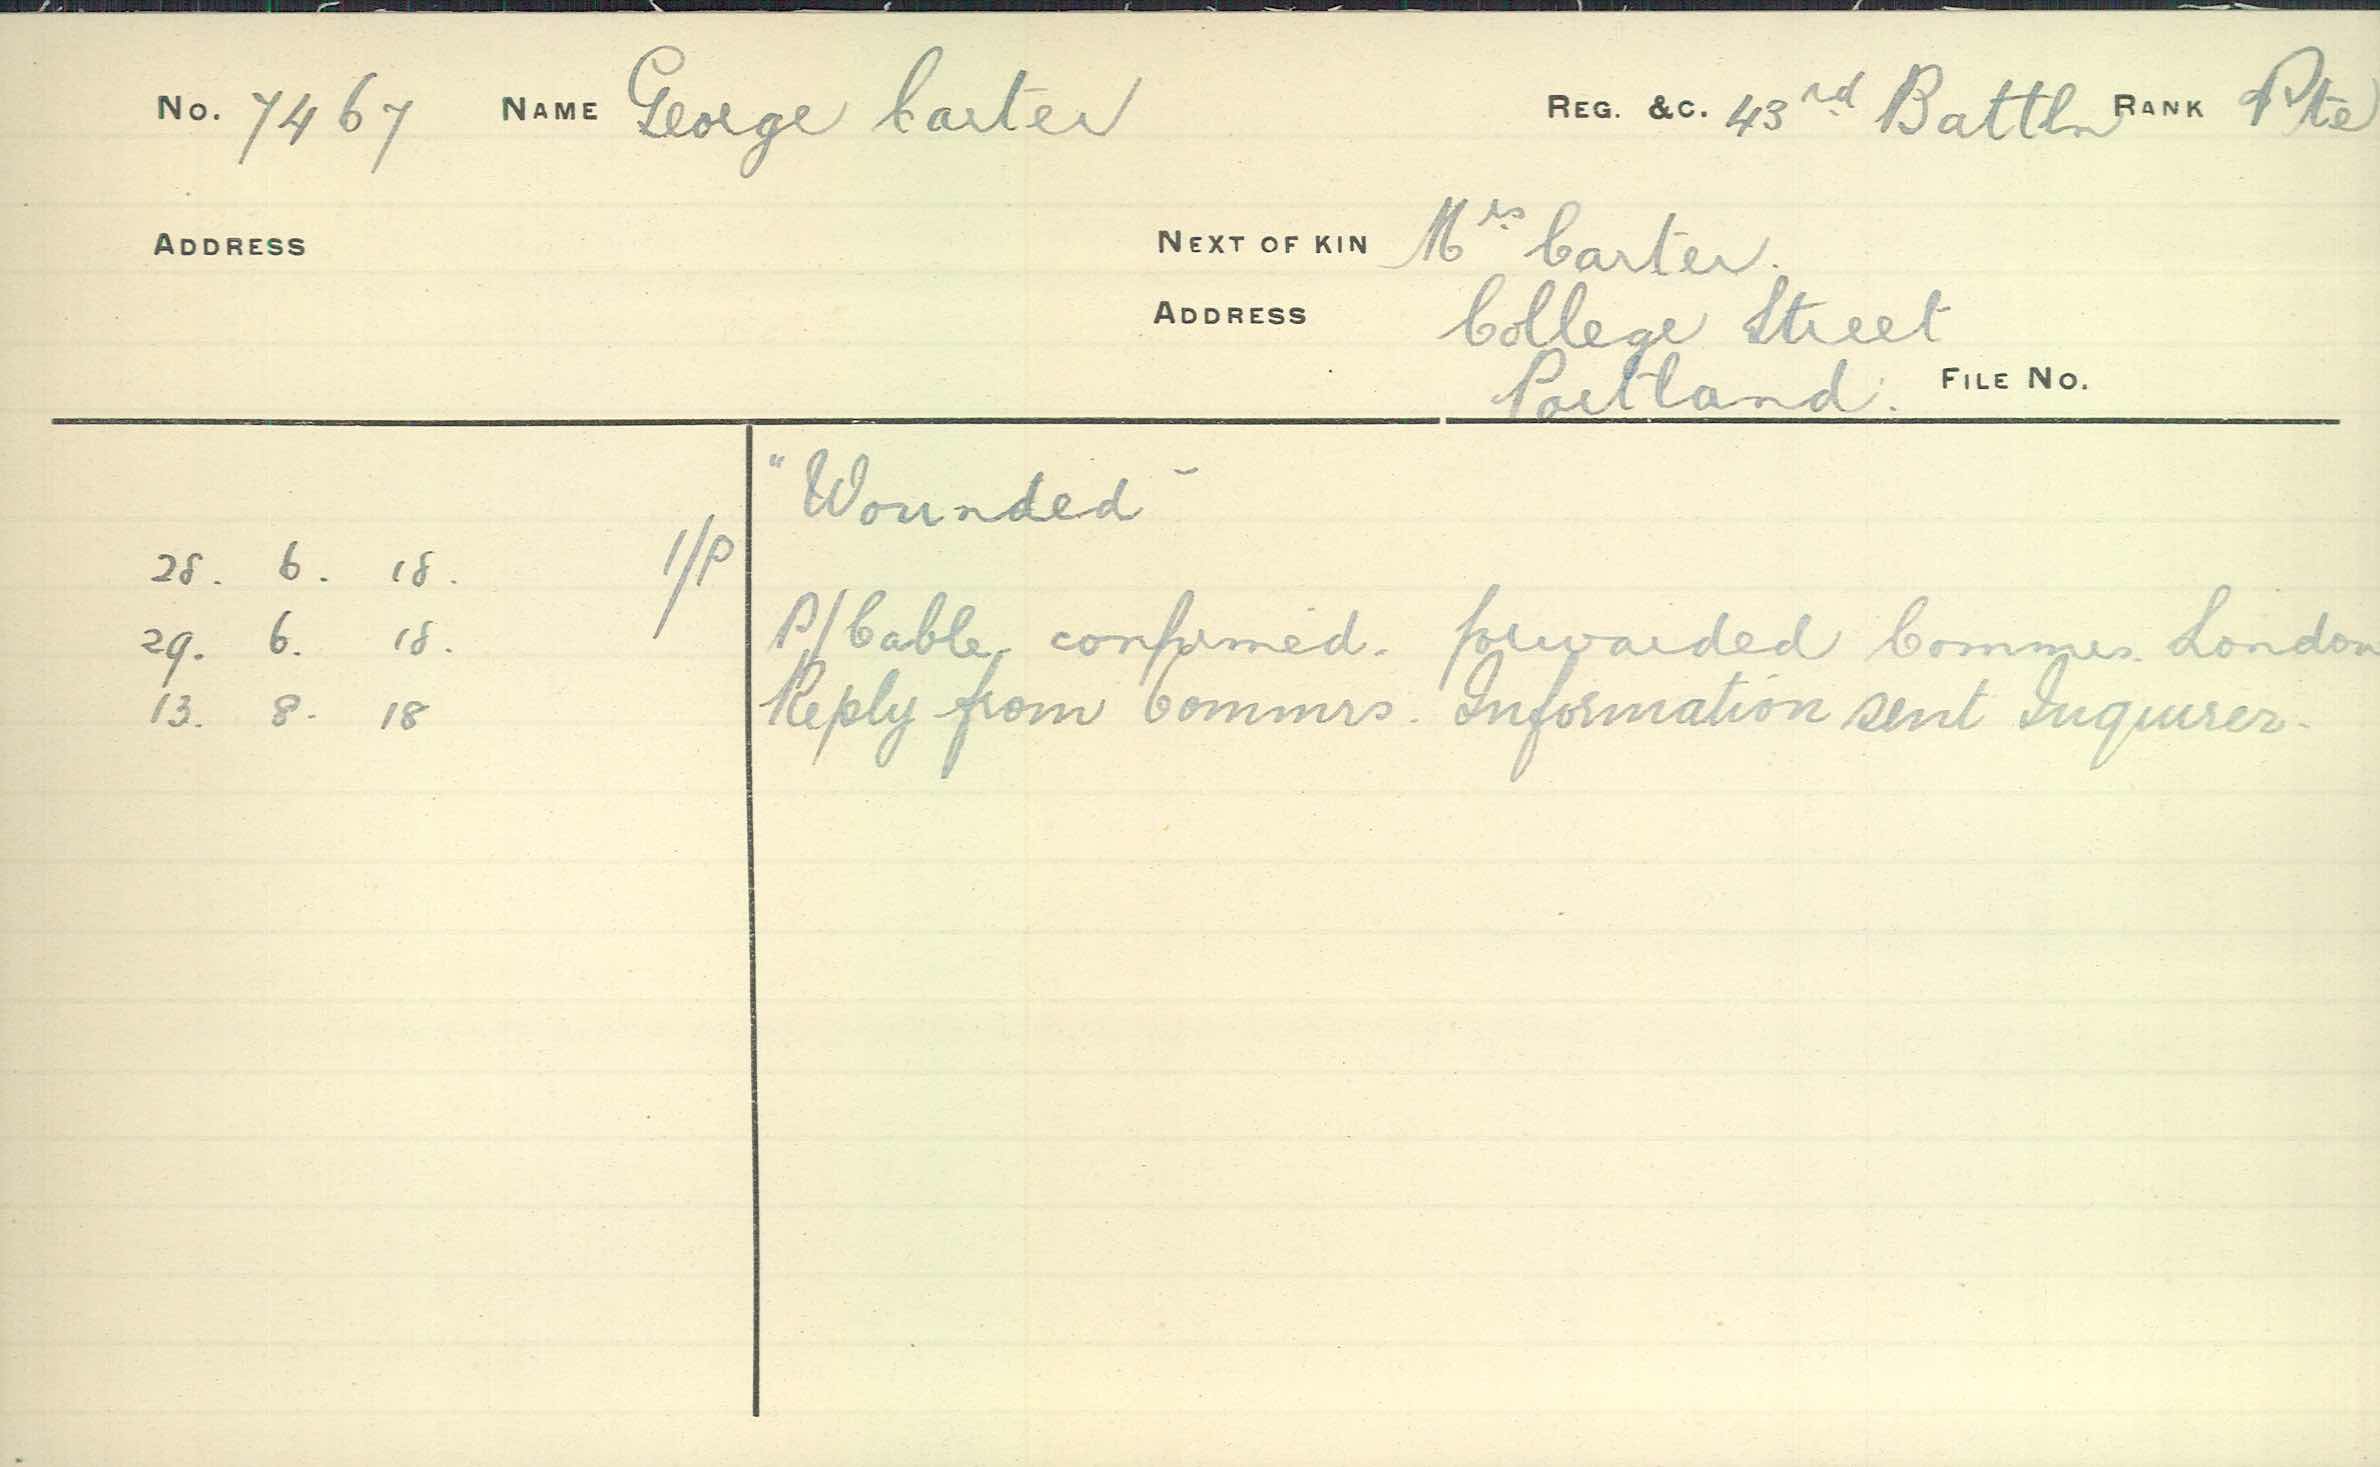 No. 7467 NAME George Carter REG. &C. 43rd Battln RANK Pte
ADDRESS NEXT OF KIN Mrs Carter.
ADDRESS College Street
Portland. FILE No.
"Wounded"
28. 6. 18. 1/P
29. 6. 18. P/Cable confirmed. forwarded Commrs. London
13. 8. 18 Reply from Commrs. Information sent Inquirer.